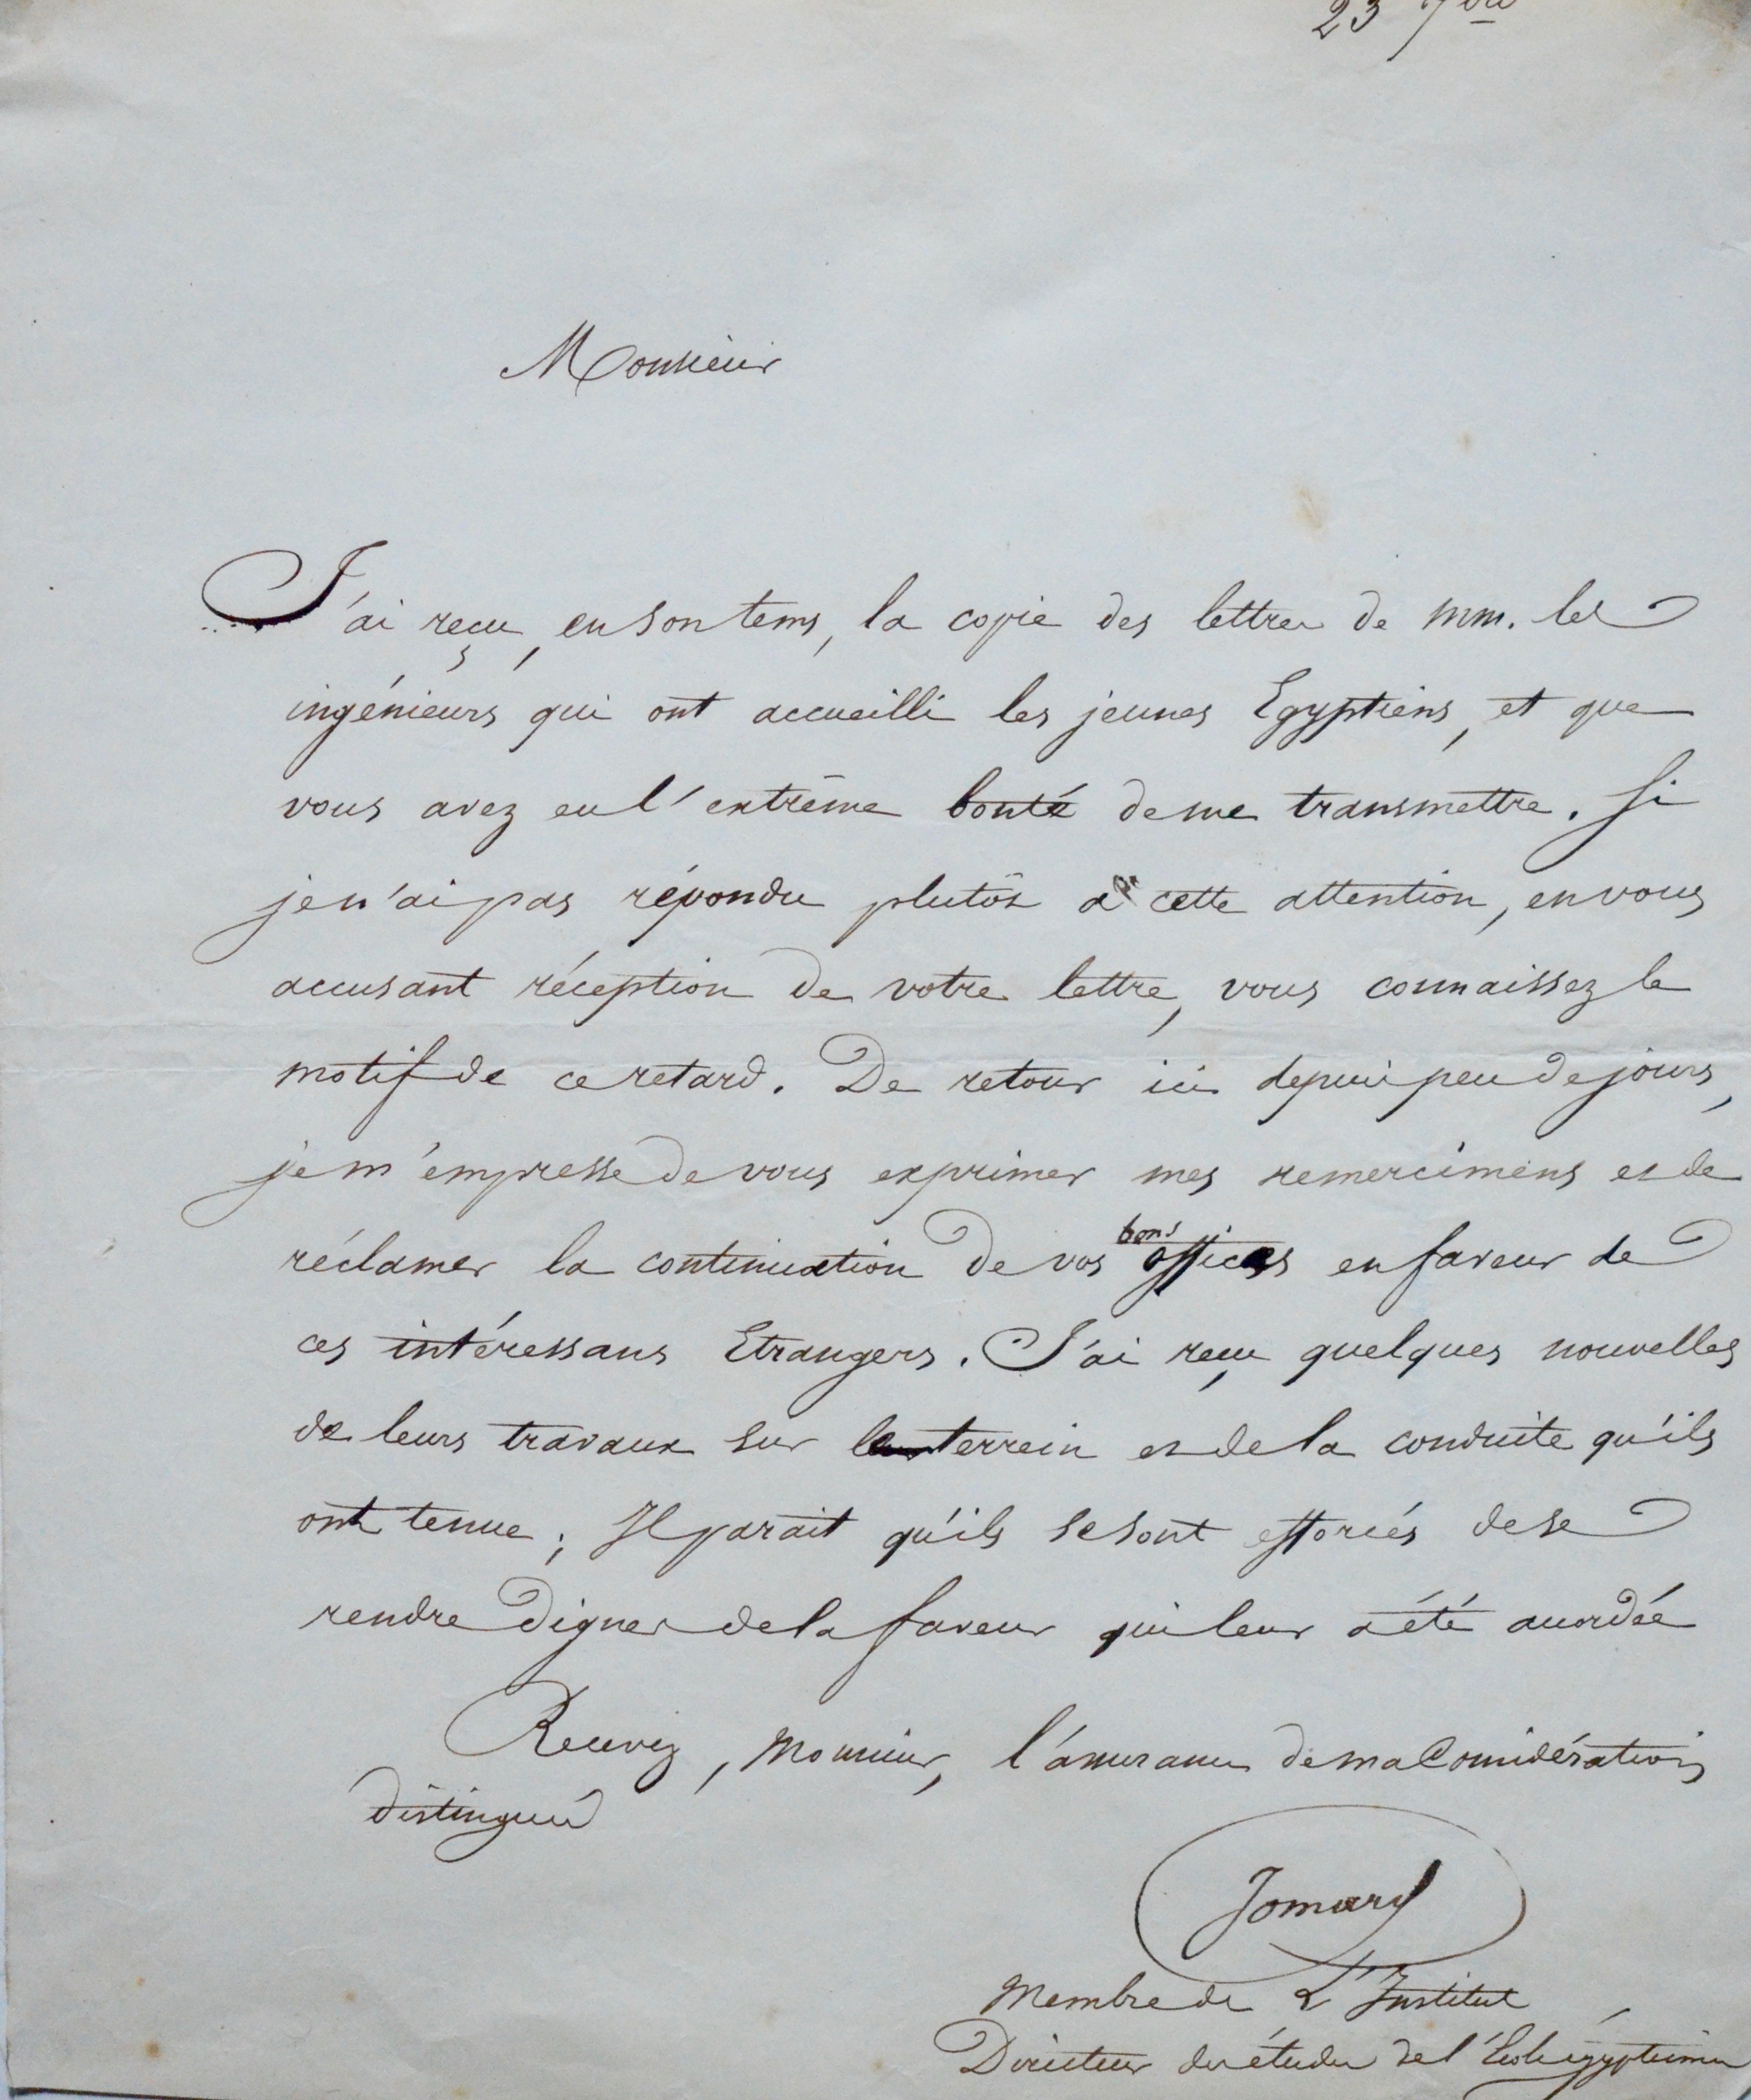 23 7bre
Monsieur
J'ai reçu, en son tems, la copie des lettres de MM. les
ingénieurs qui ont accueilli les jeunes Egyptiens, et que
vous avez eu l'extrême bonté de me transmettre. Si
je n'ai pas répondu plutôt à cette attention, en vous
accusant réception de votre lettre, vous connaissez le
motif de ce retard. De retour ici depuis peu de jours,
je m'empresse de vous exprimer mes remercimens et de
réclamer la continuation de vos bons offices en faveur de
ces intéressans Etrangers. J'ai reçu quelques nouvelles
de leurs travaux sur le terrein et de la conduite qu'ils
ont tenue ; Il parait qu'ils se sont efforcés de se
rendre dignes de la faveur qui leur a été accordée
Recevez, Monsieur, l'assurance de ma Considération
distinguée
Jomard
Membre de L'Institut
Directeur des études de l'Ecole égyptienne